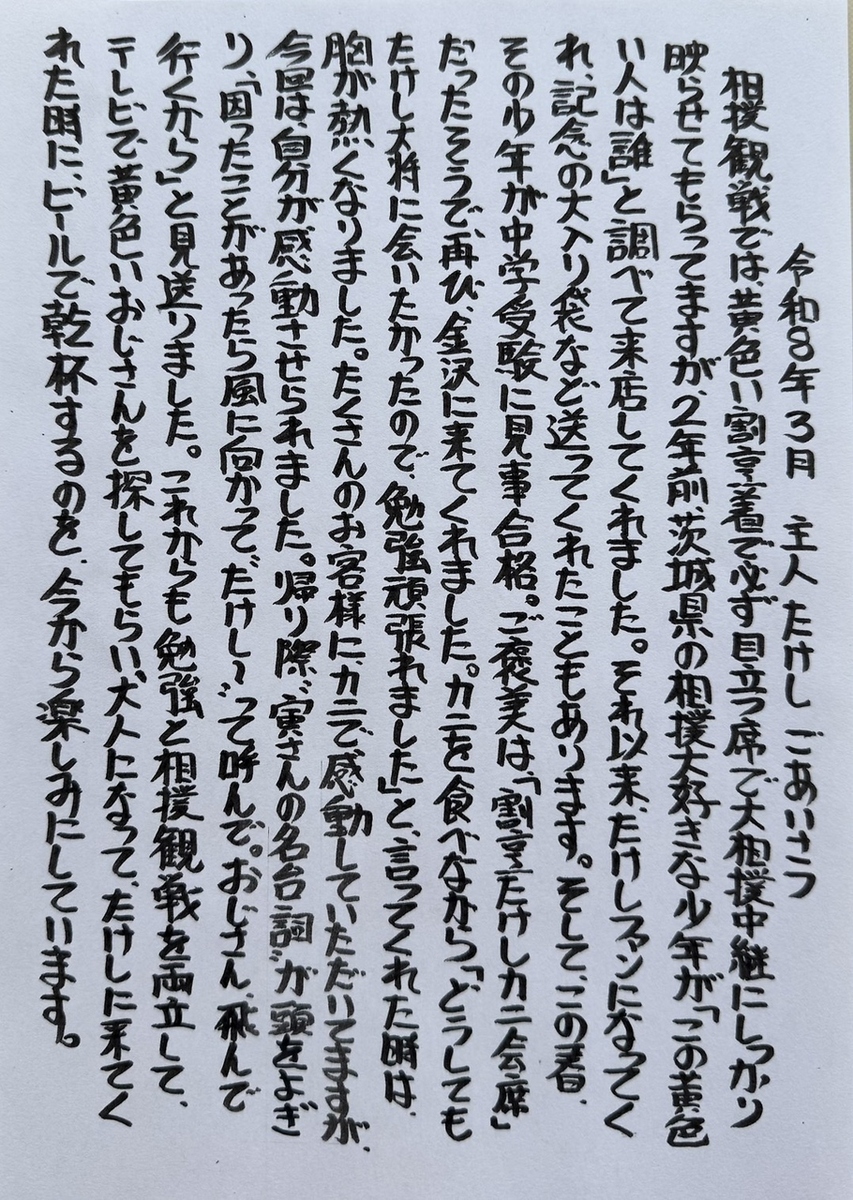 令和8年3月 主人 たけし ごあいさつ
相撲観戦では、黄色い割烹着で必ず目立つ席で大相撲中継にしっかり
映らせてもらってますが、2年前、茨城県の相撲大好きな少年が「この黄色
い人は誰」と調べて来店してくれました。それ以来、たけしファンになってく
れ、記念の大入り袋など送ってくれたこともあります。そして、この春、
その少年が中学受験に見事合格。ご褒美は、「割烹たけしカニ会席」
だったそうで、再び、金沢に来てくれました。カニを食べながら「どうしても
たけし大将に会いたかったので、勉強頑張れました」と、言ってくれた時は、
胸が熱くなりました。たくさんのお客様に、カニで感動していただいてますが、
今回は、自分が感動させられました。帰り際、“寅さんの名台詞”が頭をよぎ
り、「困ったことがあったら風に向かって、“たけし〜”って呼んで。おじさん、飛んで
行くから」と見送りました。これからも勉強と相撲観戦を両立して、
テレビで黄色いおじさんを探してもらい、大人になって、たけしに来てく
れた時に、ビールで乾杯するのを、今から楽しみにしています。